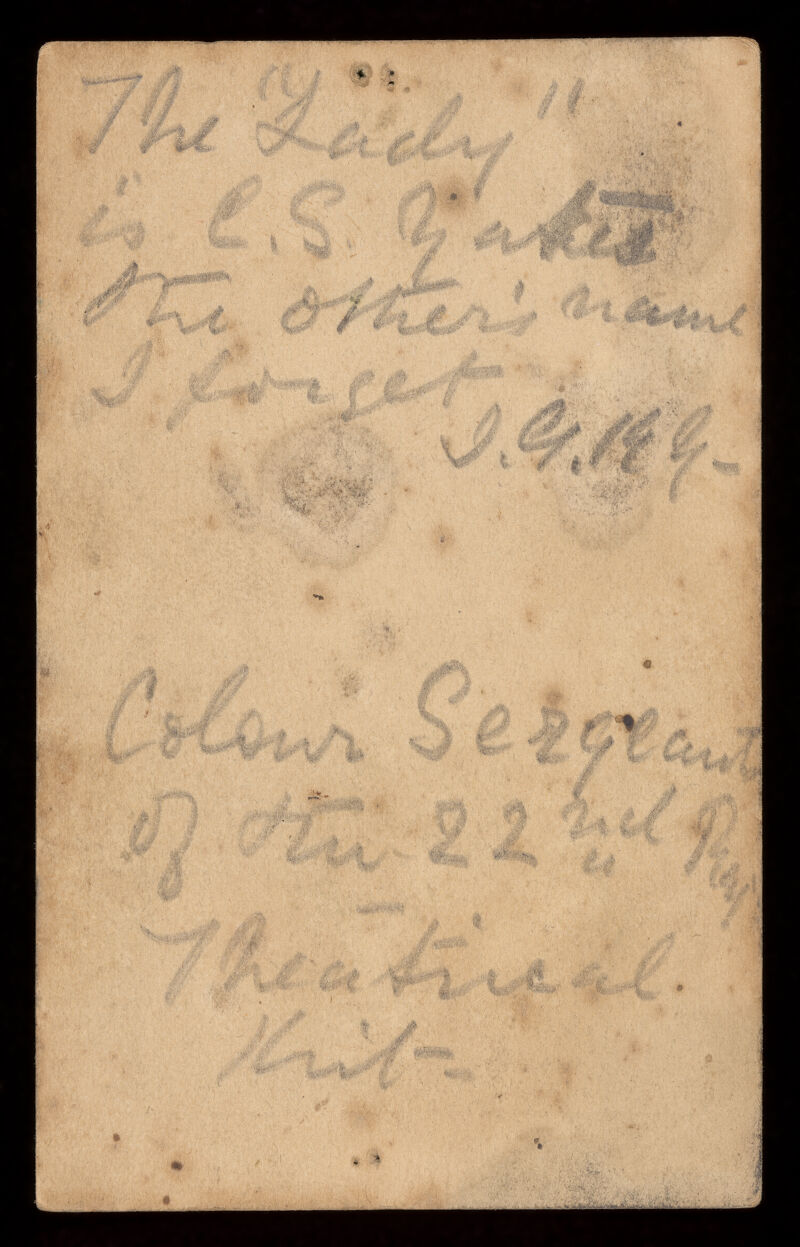 The "Lady"
is C. S. Yates
the other's name
I forget
Colour Sergeants
of the 22nd Reg
Theatrical
Kit-